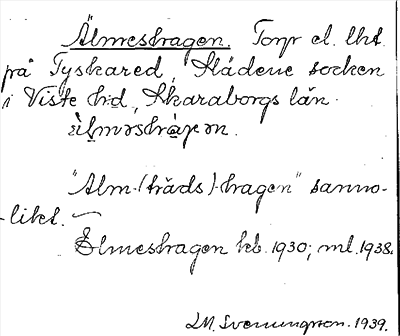 Älmeshagen. Torp el. lht
på Tyskared, Slädene socken
i Viste hd, Skaraborgs län.
ä̀lməshàɡən.
"Alm-(träds)-hagen" sanno-
-likt.
Elmeshagen kb. 1930; ml. 1938.
I.M. Svenungson. 1939.